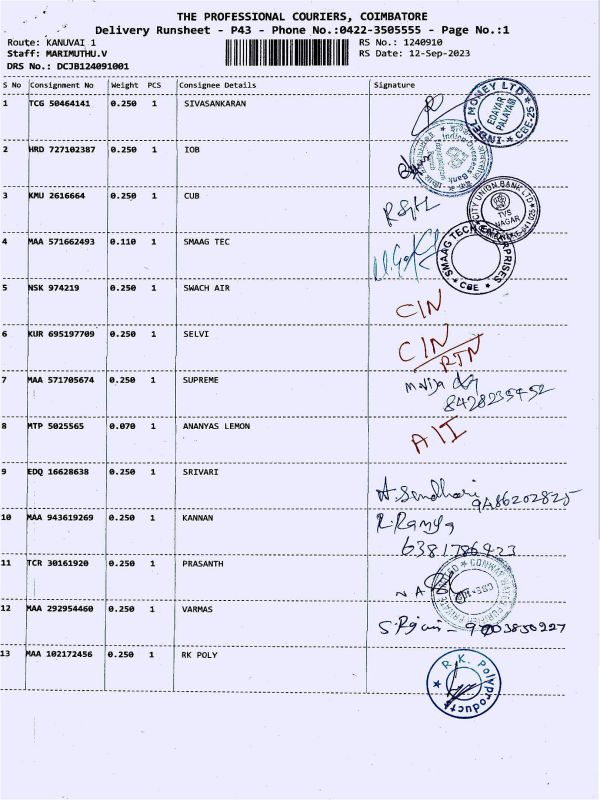 THE PROFESSIONAL COURIERS, COIMBATORE
Delivery Runsheet - P43 - Phone No.:0422-3505555 - Page No.:1
Route: KANUVAI 1 RS No.: 1240910
Staff: MARIMUTHU.V RS Date: 12-Sep-2023
DRS No.: DCJB124091001
S No Consignment No Weight PCS Consignee Details Signature
1 TCG 50464141 0.250 1 SIVASANKARAN
INDEL MONEY LTD * CBE-25 *
EDAYAR
PALAYAM
2 HRD 727102387 0.250 1 IOB
Indian Overseas Bank
3 KMU 2616664 0.250 1 CUB
CITY UNION BANK LTD
TVS
NAGAR
4 MAA 571662493 0.110 1 SMAAG TEC
SMAAG TECH ENTERPRISES
* CBE *
5 NSK 974219 0.250 1 SWACH AIR CIN
6 KUR 695197709 0.250 1 SELVI CIN
RTN
7 MAA 571705674 0.250 1 SUPREME
8428235452
8 MTP 5025565 0.070 1 ANANYAS LEMON AII
9 EDQ 16628638 0.250 1 SRIVARI
9486202825
10 MAA 943619269 0.250 1 KANNAN R.Ramya
6381786423
11 TCR 30161920 0.250 1 PRASANTH
12 MAA 292954460 0.250 1 VARMAS
13 MAA 102172456 0.250 1 RK POLY
R.K. Polyproducts